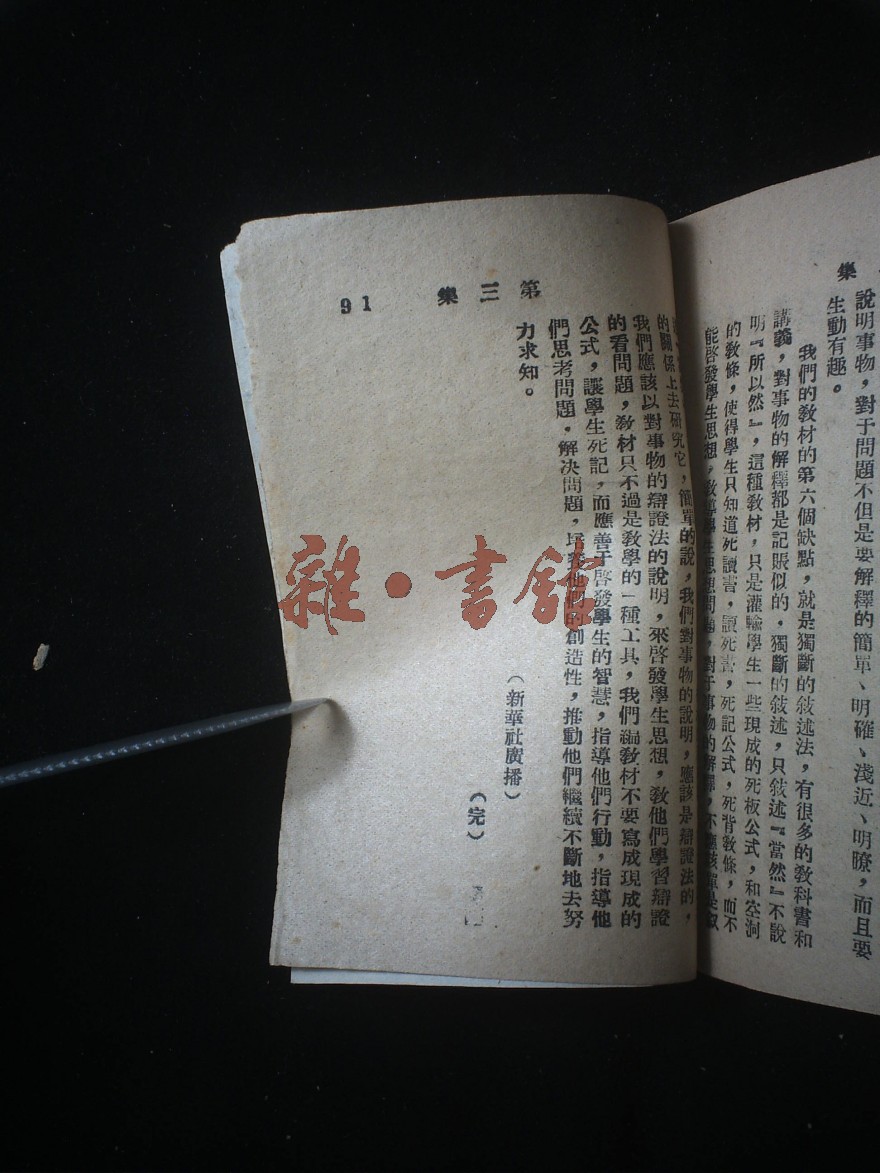 集
說明事物，對于問題不但是要解釋的簡單、明確、淺近、明瞭，而且要
生動有趣。
我們的教材的第六個缺點，就是獨斷的敍述法，有很多的教科書和
講義，對事物的解釋都是記賬似的．獨斷的敍述，只敍述『當然』不說
明『所以然』，這種教材，只是灌輸學生一些現成的死板公式，和空洞
的教條，使得學生只知道死讀書，讀死書，死記公式，死背教條，而不
能啓發學生思想，教導學生思想問題，對于事物的解釋，不應該單是叙
第三集 91
的關係上去研究它，簡單的說，我們對事物的說明，應該是辯證法的，
我們應該以對事物的辯證法的說明，來啓發學生思想，敎他們學習辯證
的看問題，敎材只不過是敎學的一種工具，我們編敎材不要寫成現成的
公式，讓學生死記，而應善于啓發學生的智慧，指導他們行動，指導他
們思考問題．解決問題，培養他們的創造性，推動他們繼續不斷地去努
力求知。
（新華社廣播）
（完）
雜·書館